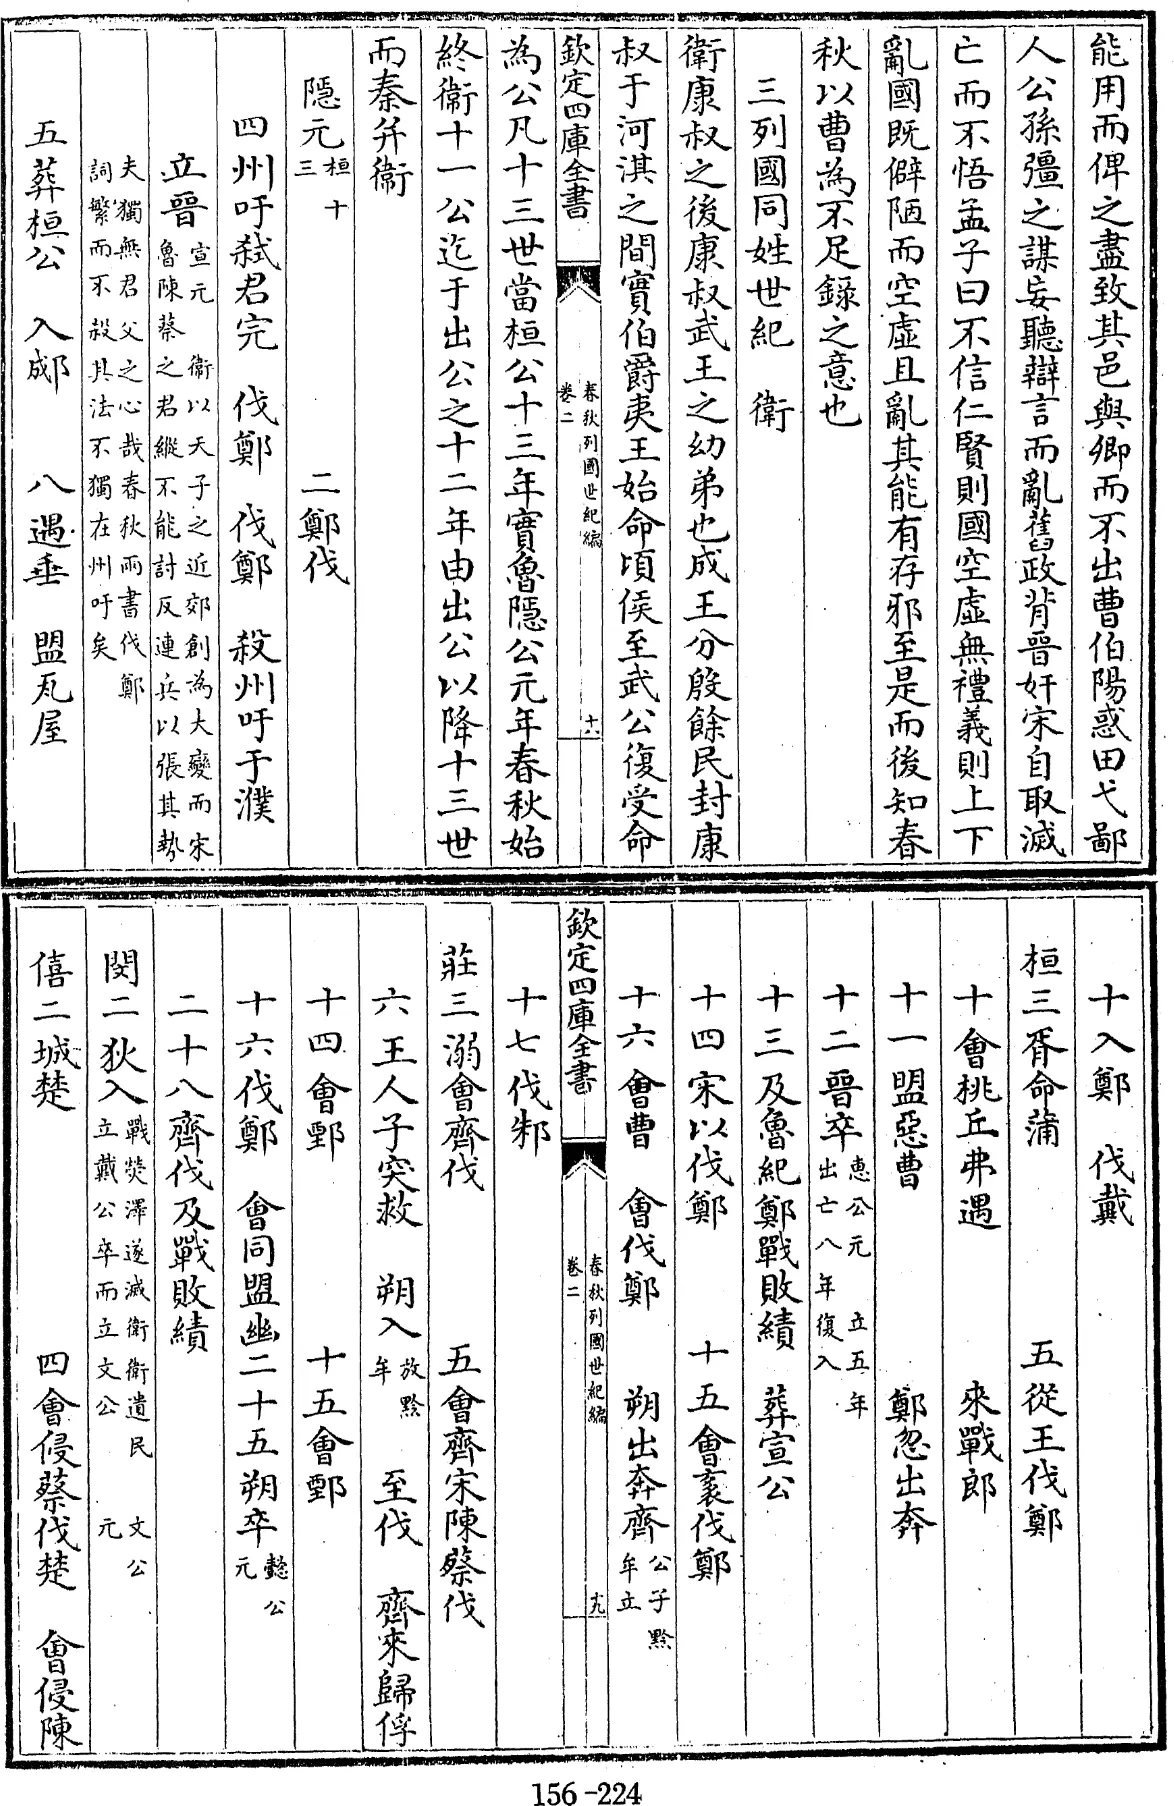 能用而俾之盡致其邑與卿而不出曹伯陽惑田弋鄙
人公孫彊之謀妄聽辯言而亂舊政背晉奸宋自取滅
亡而不悟孟子曰不信仁賢則國空虛無禮義則上下
亂國既僻陋而空虛且亂其能有存邪至是而後知春
秋以曹為不足錄之意也
三列國同姓世紀 衛
衛康叔之後康叔武王之幼弟也成王分殷餘民封康
叔于河淇之間實伯爵夷王始命頃侯至武公復受命
欽定四庫全書
春秋列國世紀編
卷二
十六
為公凡十三世當桓公十三年實魯隱公元年春秋始
終衛十一公迄于出公之十二年由出公以降十三世
而秦并衛
隱元桓十三 二鄭伐
四州吁弒君完 伐鄭 伐鄭 殺州吁于濮
立晉宣元 衛以天子之近郊創為大變而宋
魯陳蔡之君縱不能討反連兵以張其勢
夫獨無君父之心哉春秋兩書伐鄭
詞繁而不殺其法不獨在州吁矣
五葬桓公 入郕 八遇垂 盟瓦屋
十入鄭 伐戴
桓三胥命蒲 五從王伐鄭
十會桃丘弗遇 來戰郎
十一盟惡曹 鄭忽出奔
十二晉卒惠公元 立五年
出亡八年復入
十三及魯紀鄭戰敗績 葬宣公
十四宋以伐鄭 十五會袲伐鄭
十六會曹 會伐鄭 朔出奔齊公子黔
年立
欽定四庫全書
春秋列國世紀編
卷二
十七伐邾
莊三溺會齊伐 五會齊宋陳蔡伐
六王人子突救 朔入放黔年 至伐 齊來歸俘
十四會鄄 十五會鄄
十六伐鄭 會同盟幽二十五朔卒懿公元
二十八齊伐及戰敗績
閔二狄入戰熒澤遂滅衛衛遺民 文公
立戴公卒而立文公 元
僖二城楚 四會侵蔡伐楚 會侵陳
156-224